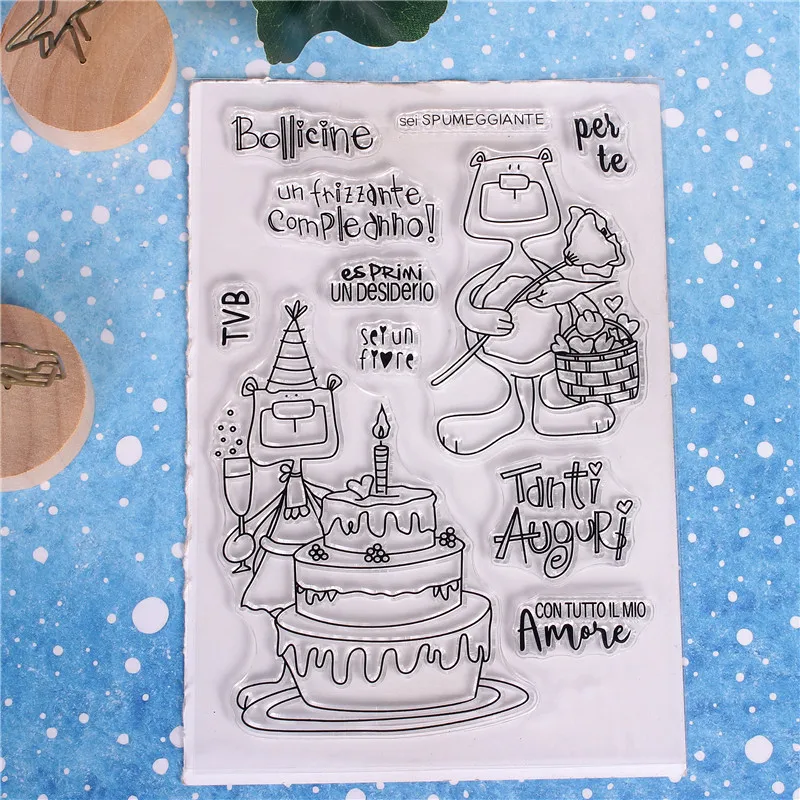 Bollicine
sei SPUMEGGIANTE
per
te
un frizzante
compleanno!
esprimi
UN DesiDeRio
TVB
sei un
fiore
Tanti
AuguRi
CON TUTTO IL MIO
Amore